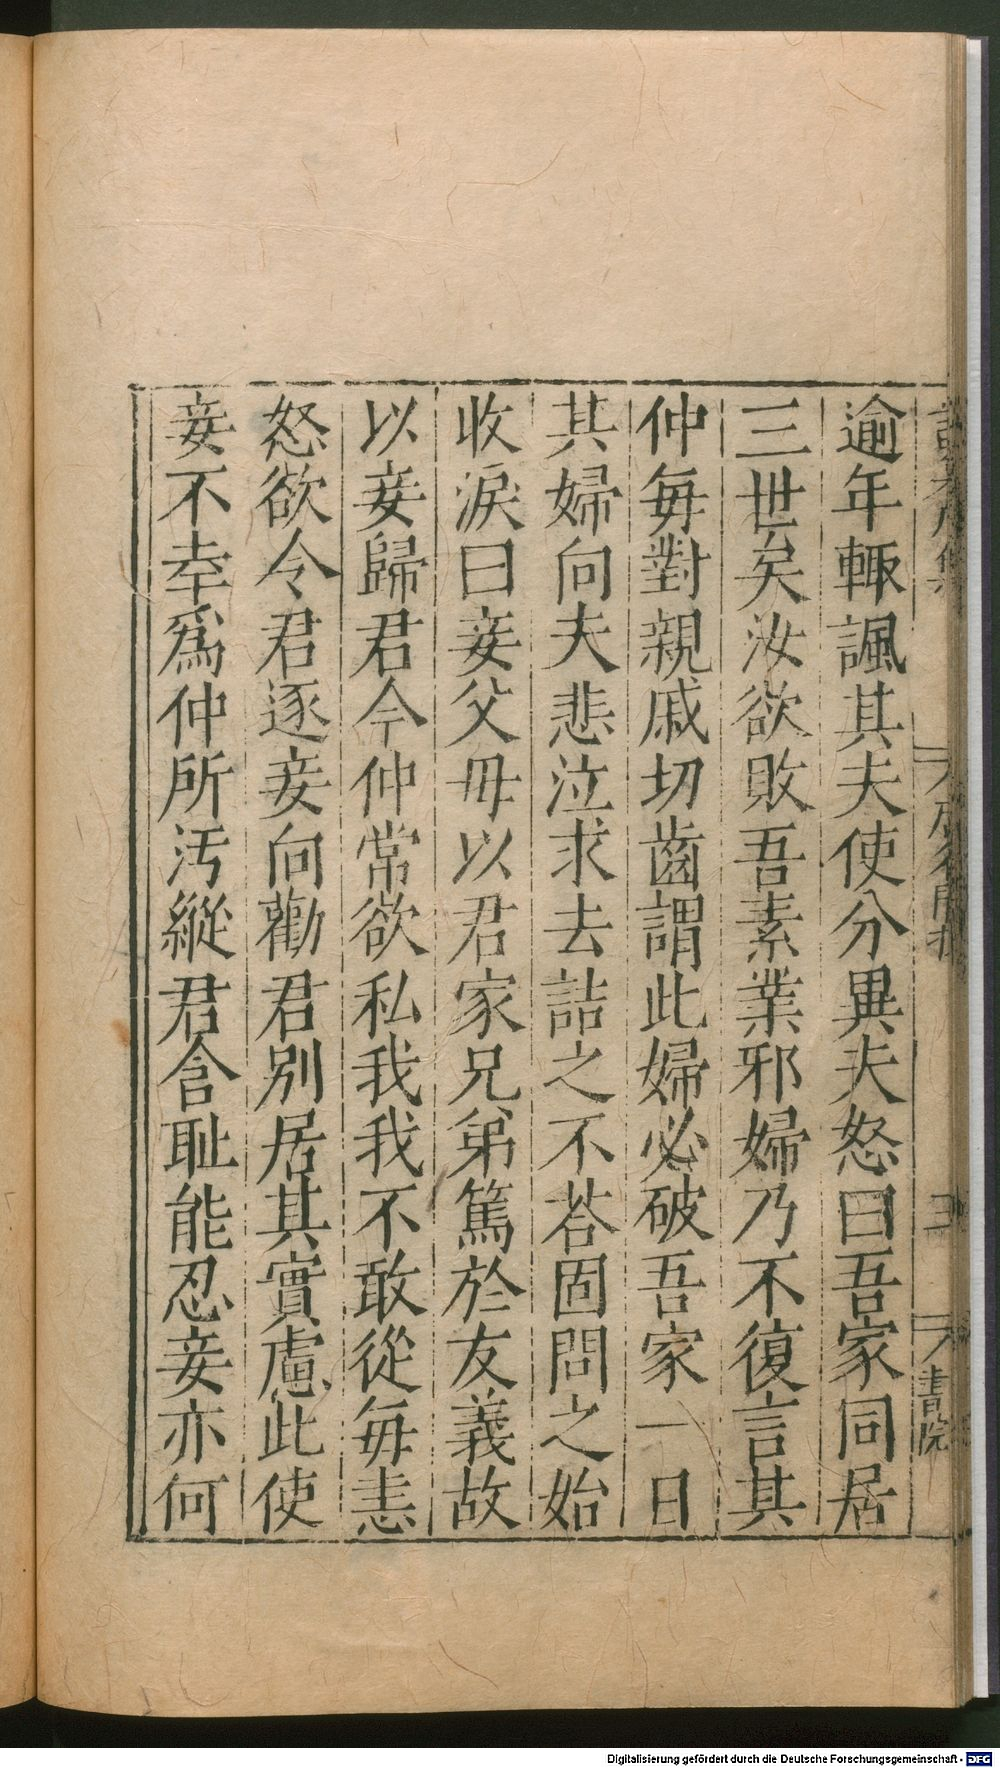 逾年輙諷其夫使分異夫怒曰吾家同居
三世矣汝欲敗吾素業邪婦乃不復言其
仲每對親戚切齒謂此婦必破吾家一日
其婦向夫悲泣求去詰之不荅固問之始
收淚曰妾父母以君家兄弟篤於友義故
以妾歸君今仲常欲私我我不敢從每恚
怒欲令君逐妾向勸君別居其實慮此使
妾不幸爲仲所汚縱君含恥能忍妾亦何
書院
Digitalisierung gefördert durch die Deutsche Forschungsgemeinschaft - DFG